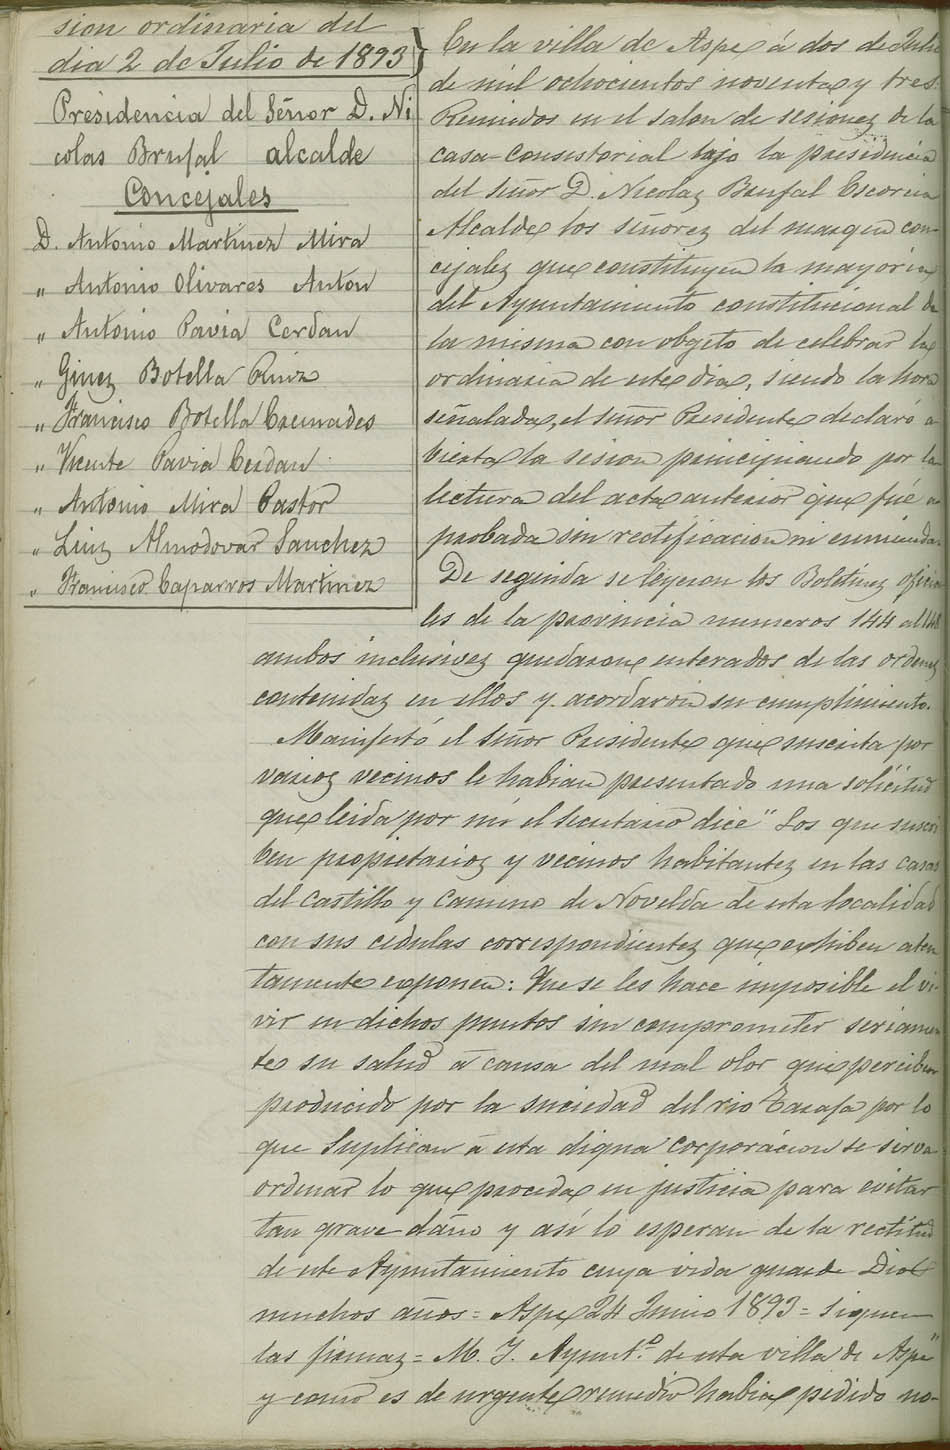 sion ordinaria del
dia 2 de Julio de 1893
Presidencia del Señor D. Ni
colas Brufal alcalde
Concejales
D. Antonio Martinez Mira
" Antonio Olivares Anton
" Antonio Pavia Cerdan
" Ginez Botella Ruiz
" Francisco Botella Cremades
" Vicente Pavia Cerdan
" Antonio Mira Pastor
" Luiz Almodovar Sanchez
" Francisco Caparros Martinez
En la villa de Aspe á dos de Julio
de mil ochocientos noventa y tres.
Reunidos en el salon de sesionez de la
casa-Consistorial bajo la presidencia
del Señor D. Nicolaz Brufal Escorcia
Alcalde los señorez del margen con-
cejalez que constituyen la mayoria
del Ayuntamiento constitucional de
la misma con objeto de celebrar la
ordinaria de este dia, siendo la hora
señalada, el Señor Presidente declaró a
bierta la sesion principiando por la
lectura del acta anterior que fué a
probada sin rectificacion ni enmienda.
De seguida se leyeron los Boletinez oficia
les de la provincia numeros 144 al 148
ambos inclusivez quedaron enterados de las ordenez
contenidaz en ellos y acordaron su cumplimiento.
Manifestó el Señor Presidente que suscrita por
varioz vecinos le habian presentado una solicitud
que leida por mi el Secretario dice "Los que suscri
ben propietarioz y vecinos habitantez en las casas
del Castillo y Camino de Novelda de esta localidad
con sus cedulas correspondientez que exhiben aten
tamente exponen: Que se les hace imposible el vi-
vir en dichos puntos sin comprometer seriamen
te su salud á causa del mal olor que perciben
producido por la suciedad del rio Tarafa por lo
que Suplican á esta digna corporacion se sirva
ordenar lo que proceda en justicia para evitar
tan grave daño y así lo esperan de la rectitud
de este Ayuntamiento cuya vida guarde Dios
muchos años = Aspe 24 Junio 1893 = Siguen
las firmaz = M. Y. Ayuntº. de esta villa de Aspe"
y como es de urgente remedio habia pedido no-